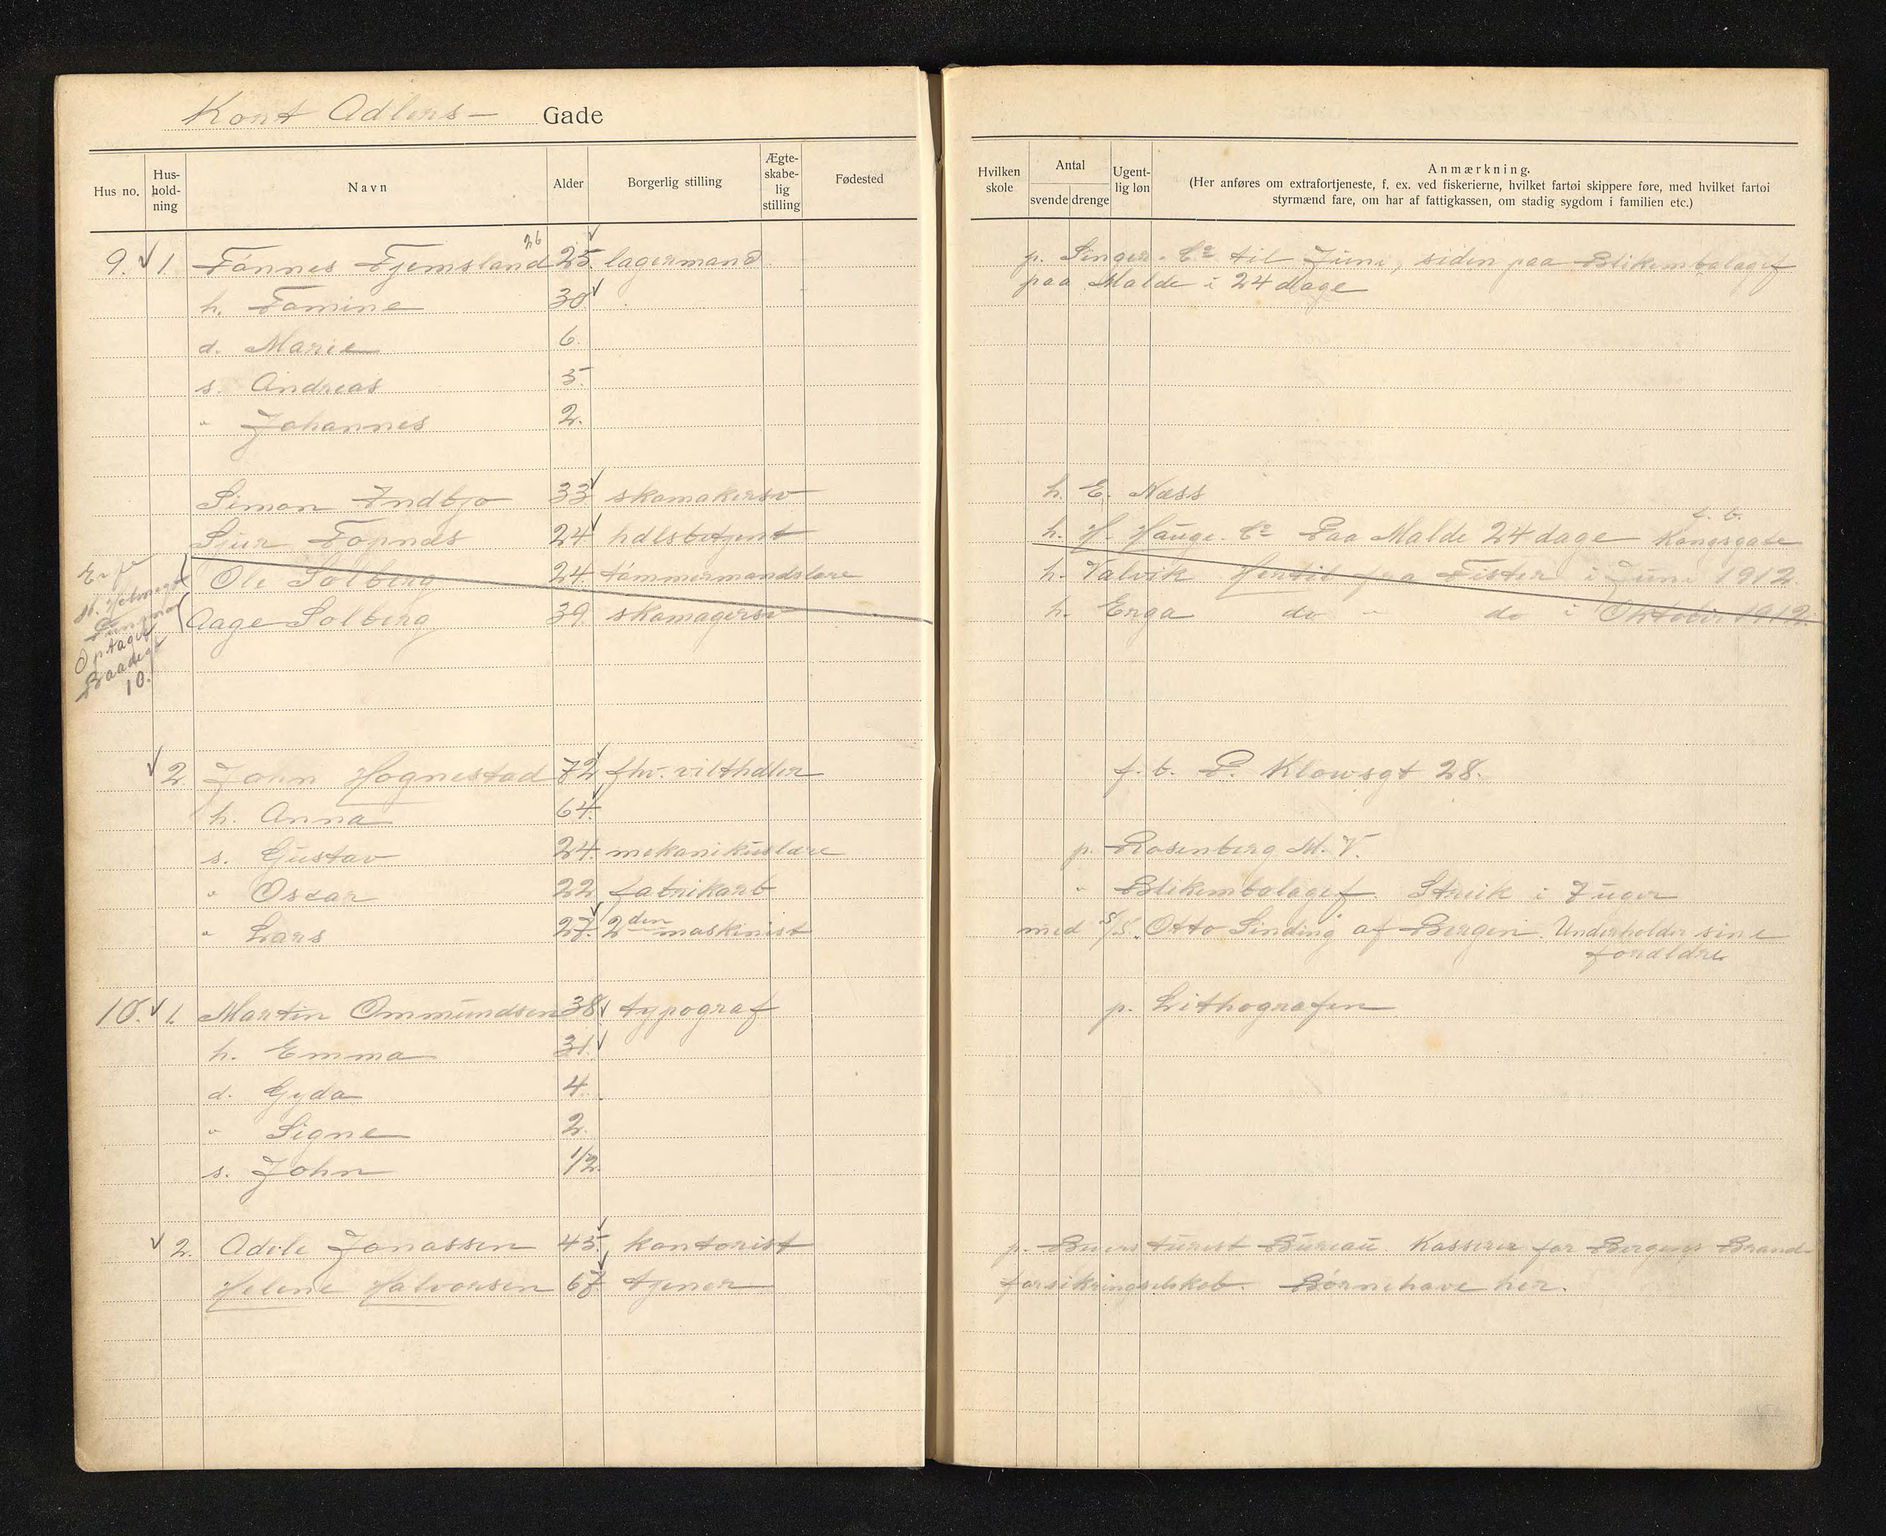 Kort Adlers - Gade
Hus no. Hus-hold-ning Navn Alder Borgerlig stilling Ægte-skabe-lig stilling Fødested
Hvilken skole Antal svende drenge Ugent-lig løn Anmærkning.
(Her anføres om extrafortjeneste, f. ex. ved fiskerierne, hvilket fartøi skippere føre, med hvilket fartøi
styrmænd fare, om har af fattigkassen, om stadig sygdom i familien etc.)
26
9. 1. Tønnes Fjemsland 25. lagermand p. Singer Co til Juni, siden paa Blikemballagef
h. Tomine 30 paa Malde i 24 dage
d. Marie 6.
s. Andreas 5.
" Johannes 2.
Simon Indbjo 33 skomakersv h. E. Næss
f. b.
Sjur Fopnæs 24 hdlsbetjent h. H. Hauge Co Paa Malde 24 dage Kongsgate
Ole Solberg 24. tømmermandslære h. Valvik Hertil fra Fister i Juni 1912.
Aage Solberg 39. skomagersv h. Erga do " do i Oktober 1912.
Optaget
10.
2. John Hognestad 72 fhv. vilthdler f. b. P. Klowsgt 28.
h. Anna 64.
s. Gustav 24. mekanikuslære p. Rosenberg M. V.
" Oscar 22 fabrikarb " Blikemballagef. Streik i 7 uger
" Lars 27. 2den maskinist med S/S. Otto Sinding af Bergen. Underholder sine
foreldre
10. 1. Martin Ommundsen 38. typograf p. Lithografen
h. Emma 31.
d. Gyda 4.
" Signe 2.
s. John 1/2.
2. Adele Jonassen 45. kontorist p. Buers Turist Bureau. Kasserer for Bergens Brand-
Helene Halvorsen 67 tjener forsikringselskab. Børnehave her.